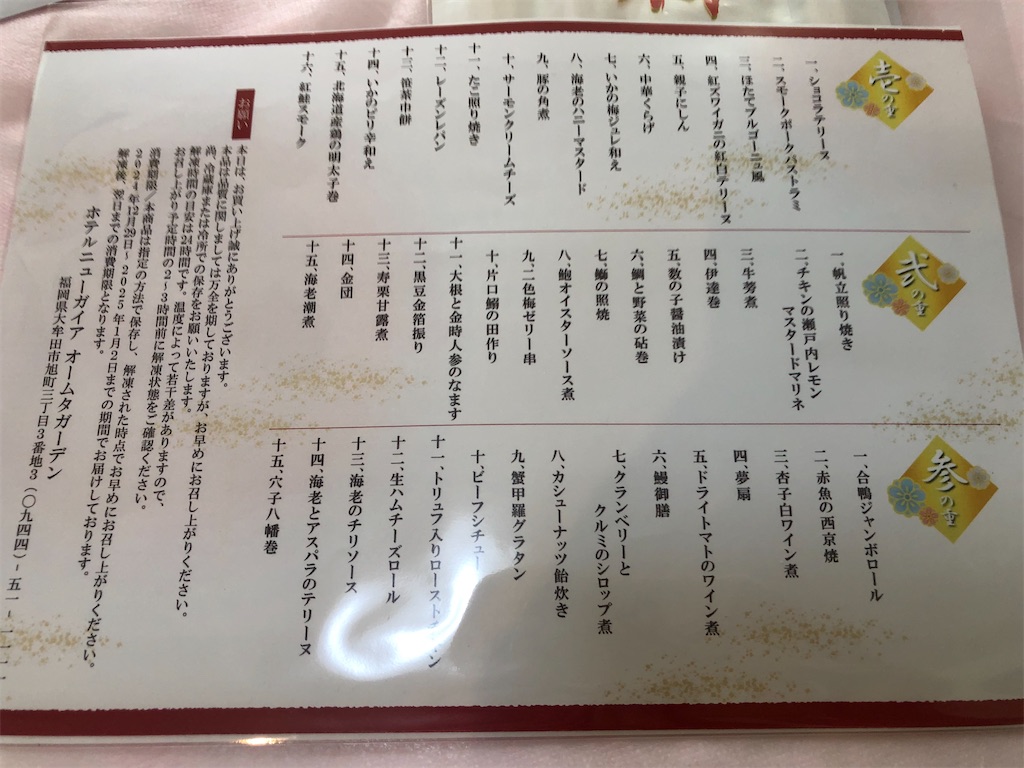 壱の重
一、ショコラテリーヌ
二、スモークポークパストラミ
三、ほたてブルゴーニュ風
四、紅ズワイガニの紅白テリーヌ
五、親子にしん
六、中華くらげ
七、いかの梅ジュレ和え
八、海老のハニーマスタード
九、豚の角煮
十、サーモンクリームチーズ
十一、たこ照り焼き
十二、レーズンレバン
十三、笹葉巾餅
十四、いかのピリ辛和え
十五、北海道産鶏の明太子巻
十六、紅鮭スモーク
弐の重
一、帆立照り焼き
二、チキンの瀬戸内レモン
マスタードマリネ
三、牛蒡煮
四、伊達巻
五、数の子醤油漬け
六、鯛と野菜の砧巻
七、鰤の照焼
八、鮑オイスターソース煮
九、二色梅ゼリー串
十、片口鰯の田作り
十一、大根と金時人参のなます
十二、黒豆金箔振り
十三、寿栗甘露煮
十四、金団
十五、海老潮煮
参の重
一、合鴨ジャンボロール
二、赤魚の西京焼
三、杏子白ワイン煮
四、夢扇
五、ドライトマトのワイン煮
六、鰻御膳
七、クランベリーと
クルミのシロップ煮
八、カシューナッツ飴炊き
九、蟹甲羅グラタン
十、ビーフシチュー
十一、トリュフ入りロースト
十二、生ハムチーズロール
十三、海老のチリソース
十四、海老とアスパラのテリーヌ
十五、穴子八幡巻
お願い
本日は、お買い上げ誠にありがとうございます。
本品は品質に関しましては万全を期しておりますが、お早めにお召し上がりください。
尚、冷蔵庫または冷所での保存をお願いいたします。
解凍時間の目安は24時間です。温度によって若干差がありますので、
お召し上がり予定時間の2～3時間前に解凍状態をご確認ください。
消費期限／本商品は指定の方法で保存し、解凍された時点でお早めにお召し上がりください。
2024年12月29日～2025年1月2日までの期間でお届けしております。
解凍後、翌日までの消費期限となります。
ホテルニューガイア オームタガーデン
福岡県大牟田市旭町三丁目3番地3（〇九四四）-五一-一一一